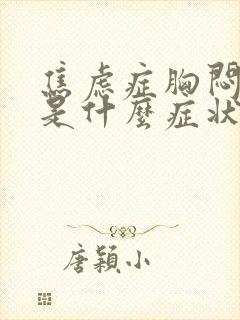 焦虑症胸闷
是什麼症状
唐颖小